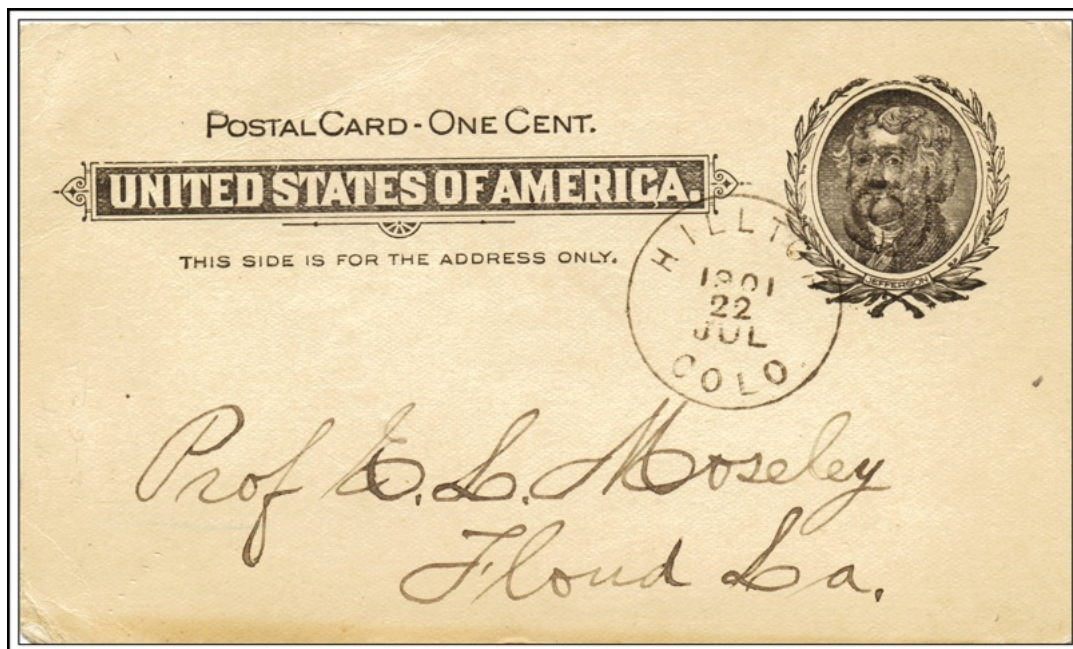 POSTAL CARD - ONE CENT.
UNITED STATES OF AMERICA.
THIS SIDE IS FOR THE ADDRESS ONLY.
JEFFERSON
HILLTO
1901
22
JUL
COLO.
Prof E. L. Moseley
Floud La.